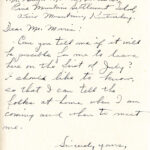 Pine Mountain Settlement School,
Pine Mountain, Kentucky.
Dear Mr. Morris:
Can you tell me if it will
be possible for me to leave
here on the last of July?
I should like to know,
so that I can tell the
folks at home when I am
coming and when to meet
me.
Sincerely yours,